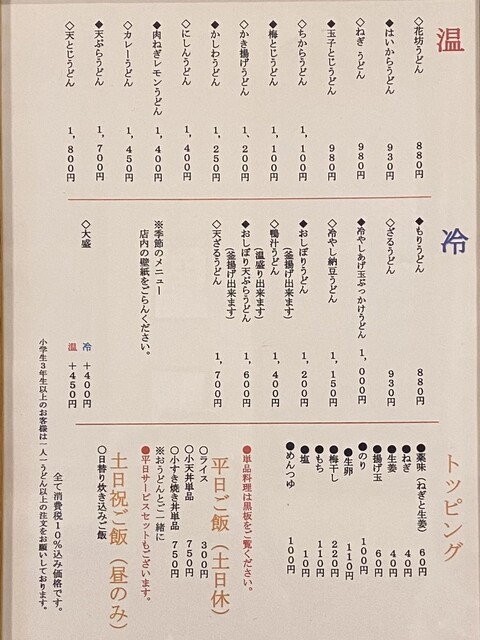 温
◇花坊うどん 880円
◆はいからうどん 930円
◇ねぎうどん 980円
◆玉子とじうどん 980円
◇ちからうどん 1,100円
◆梅とじうどん 1,100円
◇かき揚げうどん 1,200円
◆かしわうどん 1,250円
◇にしんうどん 1,400円
◆肉ねぎレモンうどん 1,400円
◇カレーうどん 1,450円
◆天ぷらうどん 1,700円
◇天とじうどん 1,800円
冷
◆もりうどん 880円
◇ざるうどん 930円
◆冷やしあげ玉ぶっかけうどん 1,000円
◇冷やし納豆うどん 1,150円
◆おしぼりうどん 1,200円
(釜揚げ出来ます)
◇鴨汁うどん 1,400円
(温盛り出来ます)
◆おしぼり天ぷらうどん 1,600円
(釜揚げ出来ます)
◇天ざるうどん 1,700円
※季節のメニュー
店内の壁紙をごらんください。
◇大盛 冷 +400円
温 +450円
トッピング
●薬味(ねぎと生姜) 60円
●ねぎ 40円
●生姜 40円
●揚げ玉 60円
●のり 100円
●生卵 110円
●梅干し 220円
●もち 110円
●塩 10円
●めんつゆ 100円
●単品料理は黒板をご覧ください。
平日ご飯(土日休)
○ライス 300円
○小天丼単品 750円
○小すき焼き丼単品 750円
※おうどんとご一緒に
●平日サービスセットもございます。
土日祝ご飯(昼のみ)
○日替り炊き込みご飯
全て消費税10%込み価格です。
小学生3年生以上のお客様は一人一うどん以上の注文をお願いしております。